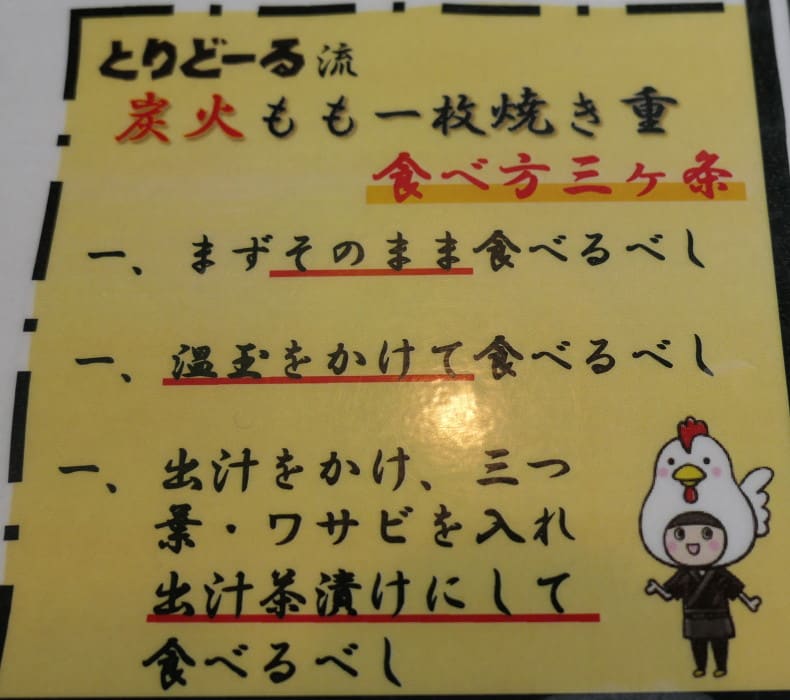 とりどーる流
炭火もも一枚焼き重
食べ方三ヶ条
一、まずそのまま食べるべし
一、温玉をかけて食べるべし
一、出汁をかけ、三つ
葉・ワサビを入れ
出汁茶漬けにして
食べるべし